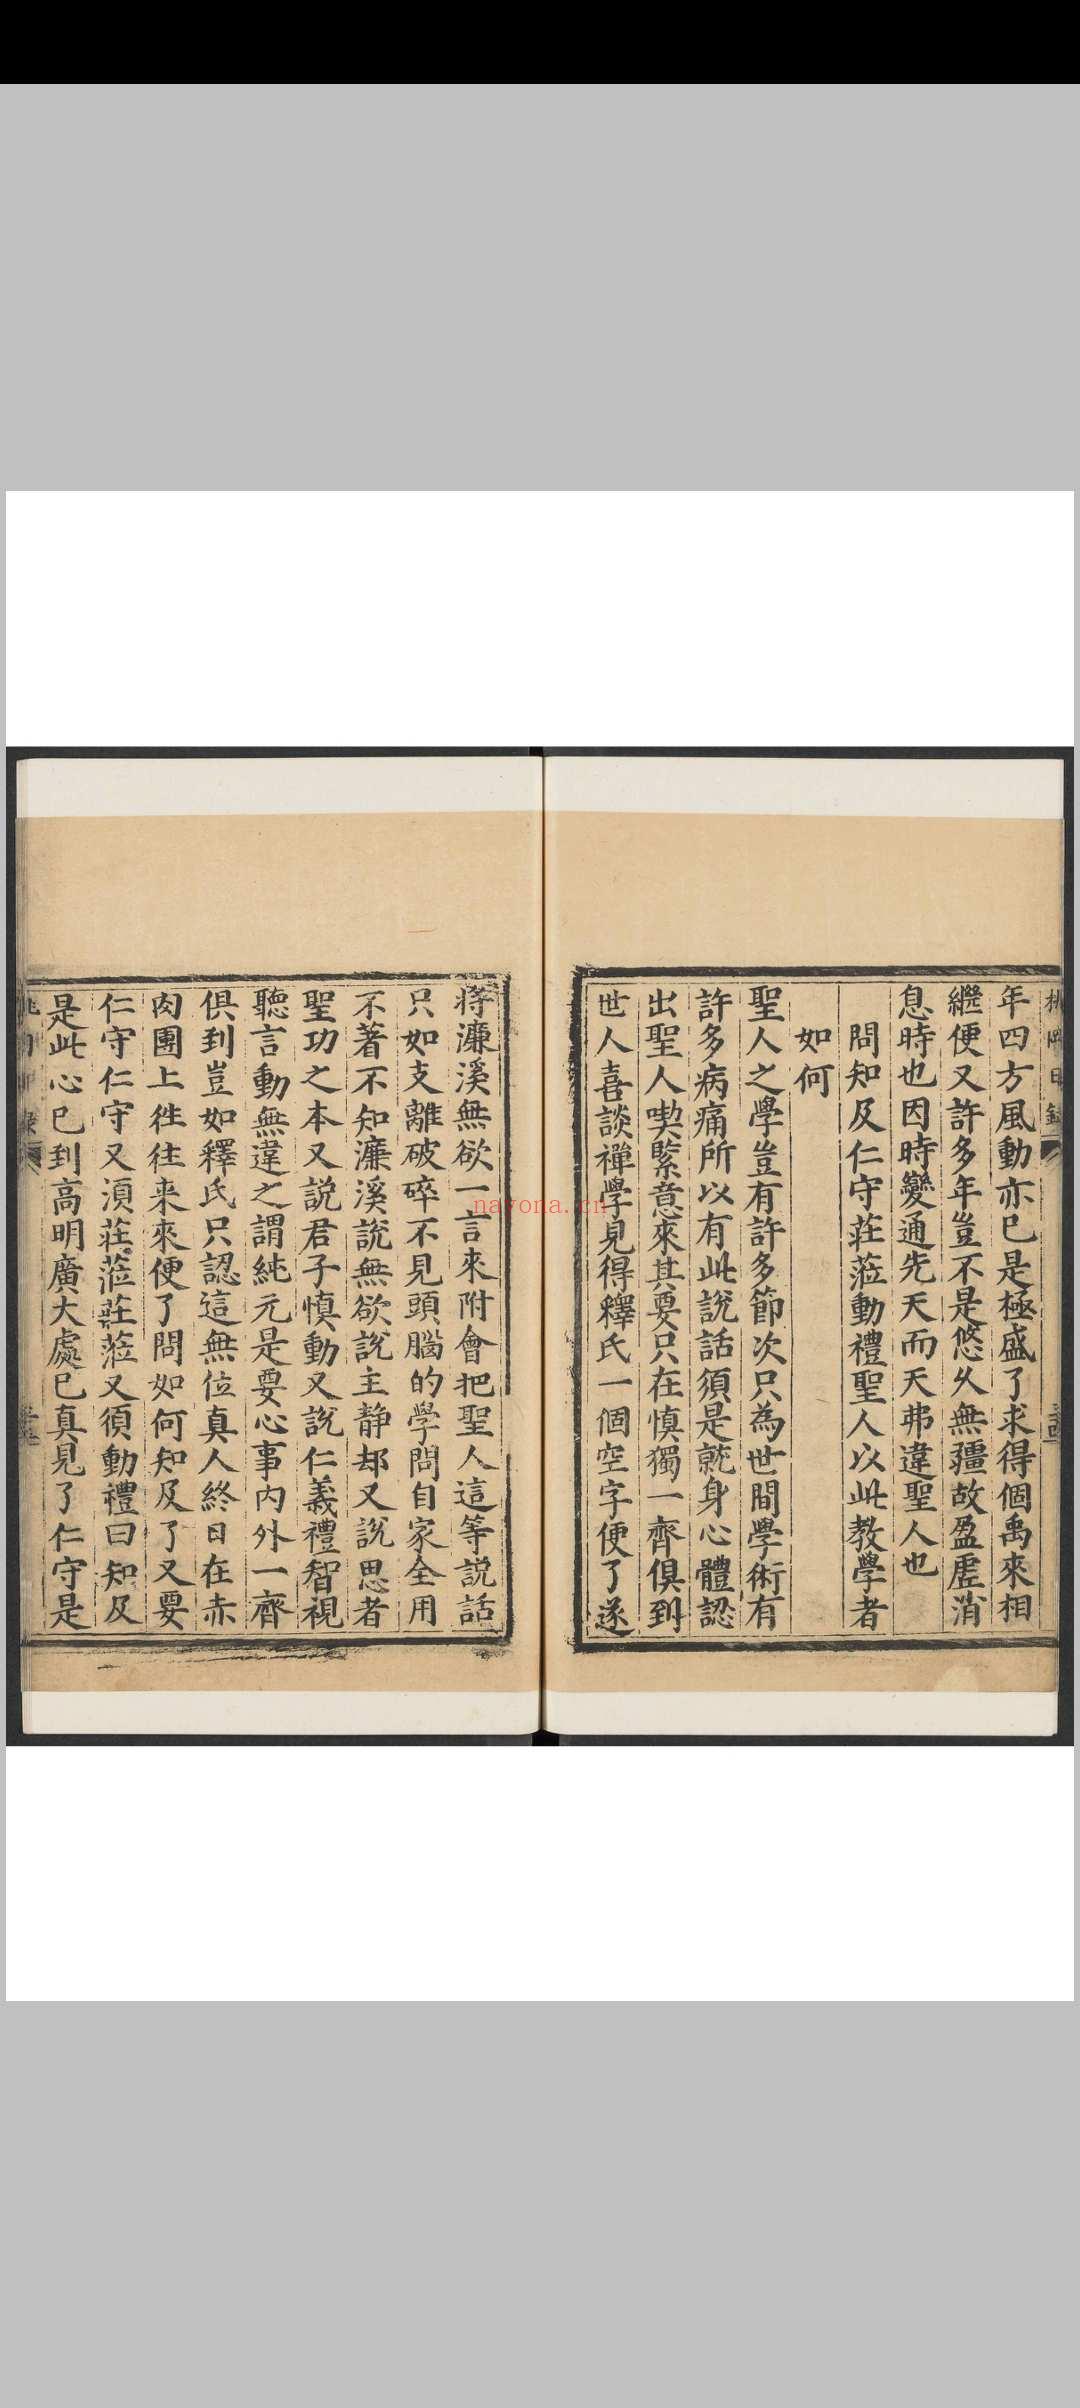 年四方風動亦已是極盛了求得個禹來相
繼便又許多年豈不是悠久無疆故盈虛消
息時也因時變通先天而天弗違聖人也
問知及仁守莊蒞動禮聖人以此教學者
如何
聖人之學豈有許多節次只為世間學術有
許多病痛所以有此說話須是就身心體認
出聖人喫緊意來其要只在慎獨一齊俱到
世人喜談禪學見得釋氏一個空字便了遂
將濂溪無欲一言來附會把聖人這等説話
只如支離破碎不見頭腦的學問自家全用
不著不知濂溪說無欲說主静却又說思者
聖功之本又說君子慎動又說仁義禮智視
聽言動無違之謂純元是要心事内外一齊
俱到豈如釋氏只認這無位真人終日在赤
肉團上往往来來便了問如何知及了又要
仁守仁守又須莊蒞莊蒞又須動禮曰知及
是此心已到高明廣大處已真見了仁守是
nayona.cn